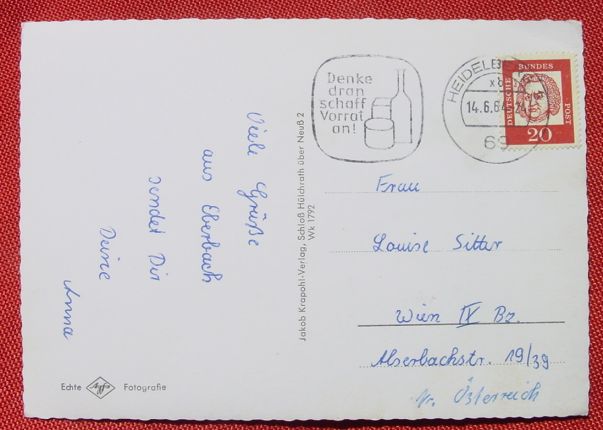 Denke
dran
schaff
Vorrat
an!
14.6.6
69
DEUTSCHE BUNDES POST
20
Viele Grüße
aus Eberbach
sendet Dir
Deine
Anna
Jakob Krapohl-Verlag, Schloß Hülchrath über Neuß 2
Wk 1792
Frau
Louise Sitter
Wien IX Bz.
Alserbachstr. 19/39
Österreich
Echte Agfa Fotografie